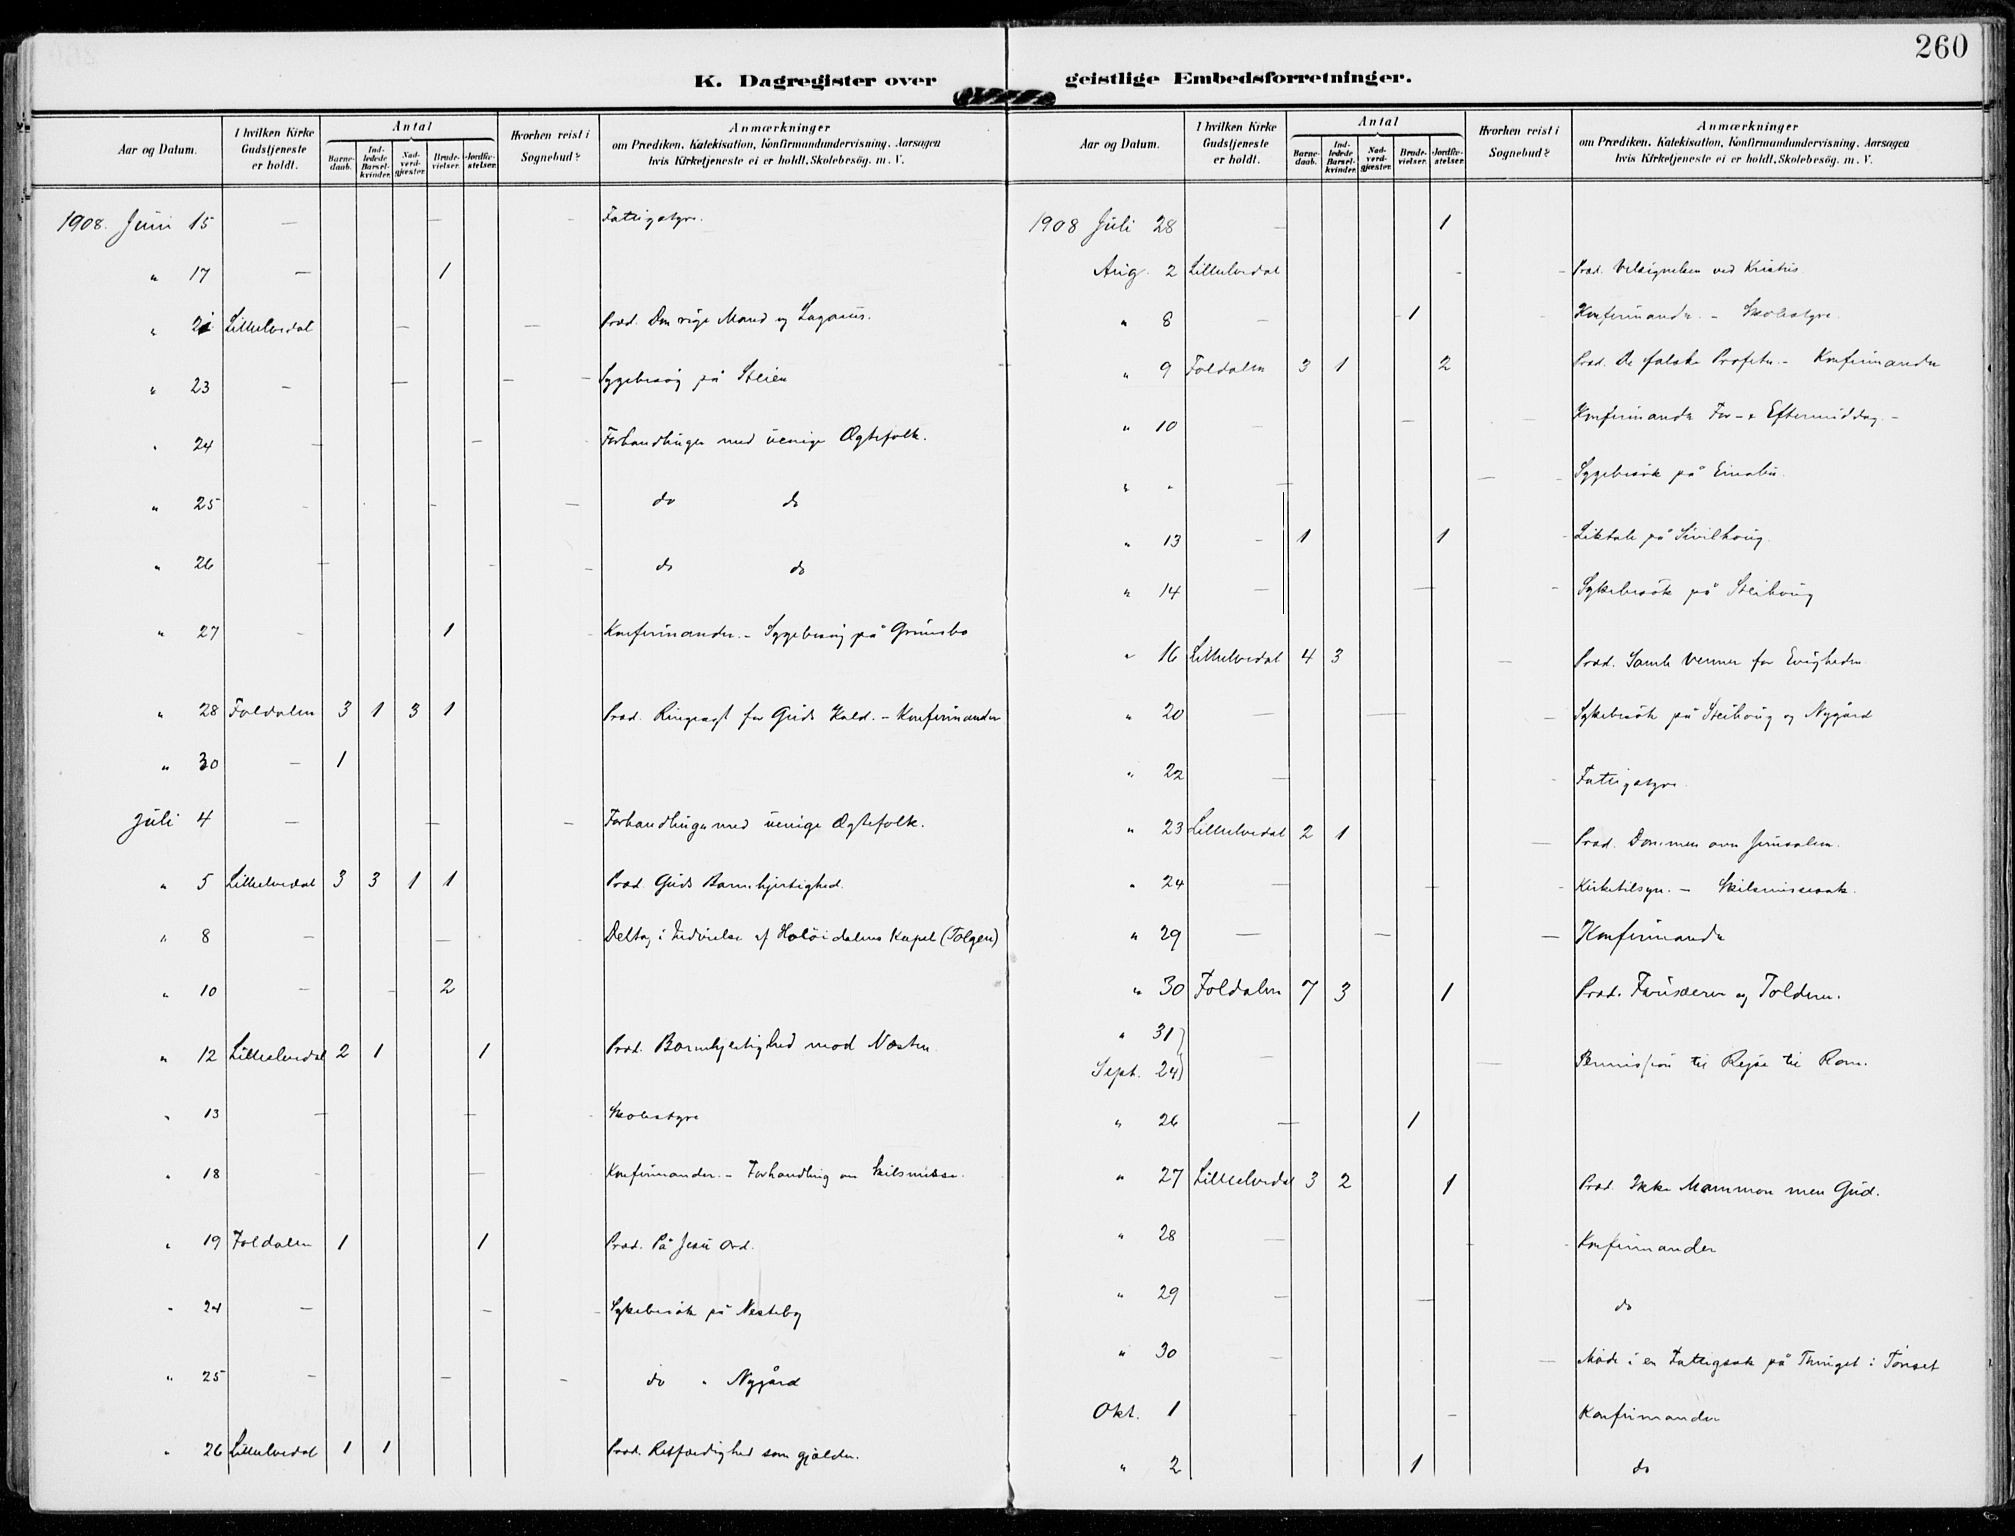 260
K. Dagregister over geistlige Embedsforretninger.
Aar og Datum. | I hvilken Kirke Gudstjeneste er holdt. | Antal | Barnedaab. | Indledede Barselkvinder. | Nadverdgjæster. | Brudevielser. | Jordfæstelser. | Hvorhen reist i Sognebud? | Anmærkninger om Prædiken, Katekisation, Konfirmandundervisning, Aarsagen hvis Kirketjeneste ei er holdt, Skolebesög. m. V.
1908. Juni 15 — — - Fattigstyre.
" 17 — 1
" 21 Lilleelvedal — — Præd. Den rige Mand og Lazarus.
" 23 - — — — Sygebesøg på Steien
" 24 — — Forhandlinger med uenige Ægtefolk.
" 25 - - - — do do
" 26 — - — do do
" 27 - 1 Konfirmander. - Sygebesøg på Grimsbo
" 28 Foldalen 3 1 3 1 Præd. Ringeagt for Guds Kald. - Konfirmander
" 30 — 1
Juli 4 — — — Forhandlinger med uenige Ægtefolk.
" 5 Lilleelvedal 3 3 1 1 Præd. Guds Barmhjertighed.
" 8 — — - Deltog i Indvielse af Holøidalens Kapel (Tolgen)
" 10 — - 2
" 12 Lilleelvedal 2 1 1 Præd. Barmhjertighed mod Næsten
" 13 — — - Skolestyre
" 18 - — Konfirmander. - Forhandling om Skilsmisse.
" 19 Foldalen 1 1 Præd. På Jesu Ord.
" 24 — — - Sykebesøk på Nesteby
" 25 — — — do " Nygård
" 26 Lilleelvedal 1 1 Præd. Retfærdighed som gjælder.
Aar og Datum. | I hvilken Kirke Gudstjeneste er holdt. | Antal | Barnedaab. | Indledede Barselkvinder. | Nadverdgjæster. | Brudevielser. | Jordfæstelser. | Hvorhen reist i Sognebud? | Anmærkninger om Prædiken, Katekisation, Konfirmandundervisning, Aarsagen hvis Kirketjeneste ei er holdt, Skolebesög. m. V.
1908 Juli 28 — 1
Aug. 2 Lilleelvedal - - Præd. Velsignelsen ved Kristus.
" 8 — 1 - Konfirmander. - Skolestyre.
" 9 Foldalen 3 1 2 Præd. De falske Profeter. - Konfirmander
" 10 - — — Konfirmander For- & Eftermiddag. -
" " — — - Sygebesøk på Einabu.
" 13 - 1 1 - Liktale på Sivilhaug.
" 14 — — - Sykebesøk på Steihaug
" 16 Lilleelvedal 4 3 — Præd. Samle Venner for Evigheden
" 20 — — — Sykebesøk på Steihaug og Nygård
" 22 — - - Fattigstyre.
" 23 Lilleelvedal 2 1 — Præd. Dommen over Jerusalem.
" 24 — — - Kirketilsyn. - Skilsmissesak.
" 29 — — — Konfirmander
" 30 Foldalen 7 3 1 Præd. Farisæeren og Tolderen.
" 31 }
Sept. 24 } — — Permission til Rejse til Rom.
" 26 — 1
" 27 Lilleelvedal 3 2 1 Præd. Ikke Mammon men Gud.
" 28 — - - Konfirmander
" 29 — — do
" 30 — — Møde i en Fattigsak på Thinget i Tønset
Okt. 1 - — Konfirmander
" 2 1 do